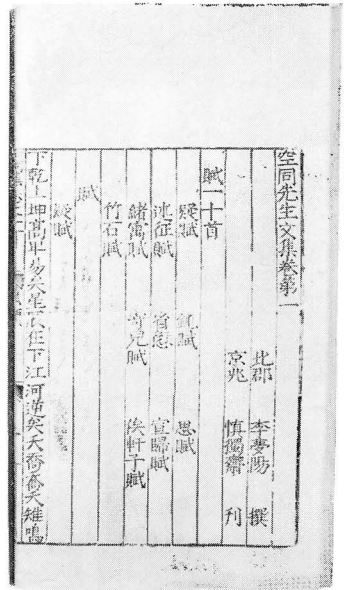 空同先生文集卷第一
北郡 李夢陽 撰
京兆 慎獨齋 刊
賦一十首
疑賦 鈍賦 思賦
述征賦 省愆賦 宣歸賦
緒寓賦 寄兒賦 俟軒子賦
竹石賦
賦
疑賦
下乾上坤高卑易矣星辰在下江河逆矣夭喬喬夭雉鳴